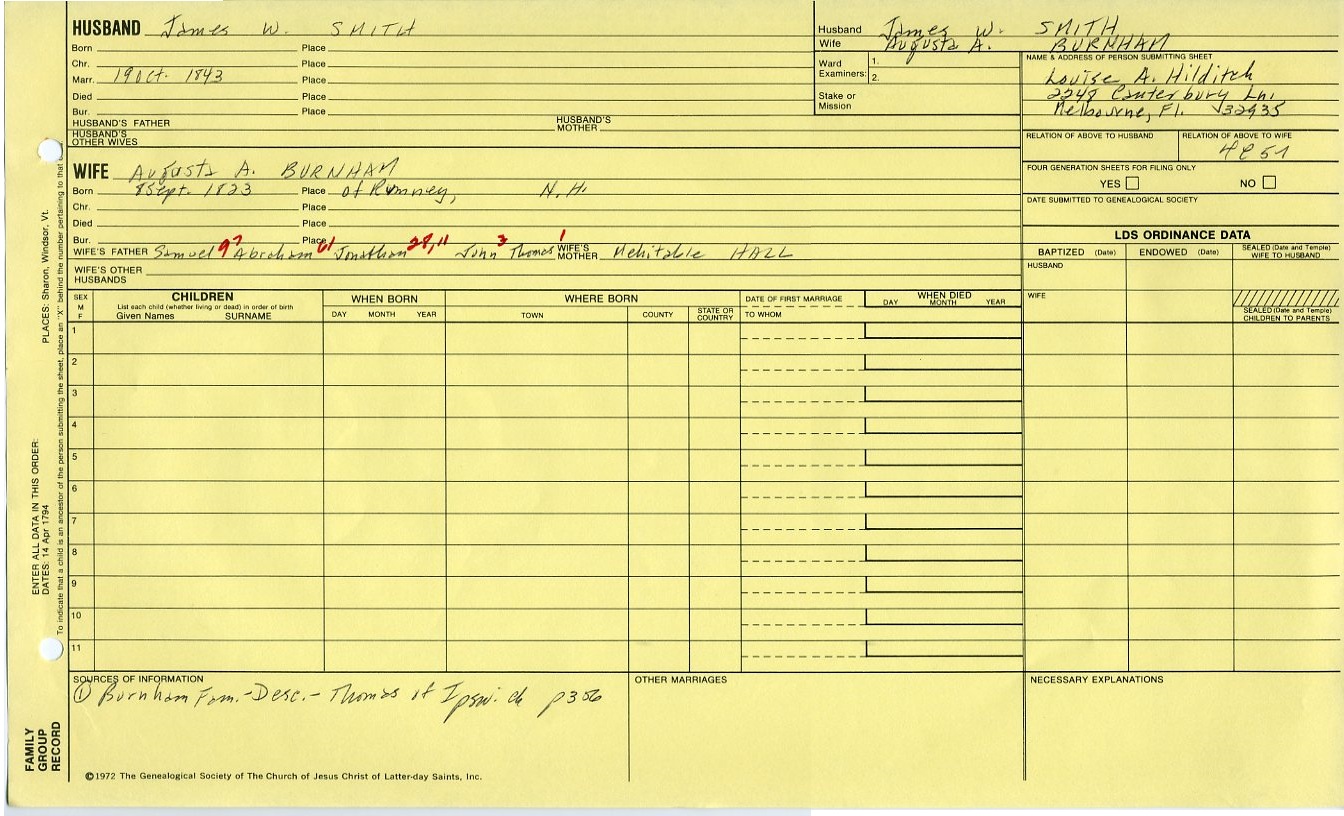 HUSBAND James W. SMITH
Born Place
Chr. Place
Marr. 19 Oct. 1843 Place
Died Place
Bur. Place
HUSBAND'S FATHER HUSBAND'S MOTHER
HUSBAND'S OTHER WIVES
Husband James W. SMITH
Wife Augusta A. BURNHAM
Ward Examiners: 1.
2.
Stake or Mission
NAME & ADDRESS OF PERSON SUBMITTING SHEET
Louise A. Hilditch
2248 Canterbury Ln.
Melbourne, Fl. 32935
RELATION OF ABOVE TO HUSBAND RELATION OF ABOVE TO WIFE
4C5R
FOUR GENERATION SHEETS FOR FILING ONLY
YES NO
DATE SUBMITTED TO GENEALOGICAL SOCIETY
WIFE Augusta A. BURNHAM
Born 8 Sept. 1823 Place of Rumney, N.H.
Chr. Place
Died Place
Bur. Place
WIFE'S FATHER Samuel 97 Abraham 61 Jonathan 28,11 John 3 Thomas 1 WIFE'S MOTHER Mehitable HALL
WIFE'S OTHER HUSBANDS
LDS ORDINANCE DATA
BAPTIZED (Date) ENDOWED (Date) SEALED (Date and Temple) WIFE TO HUSBAND
HUSBAND
WIFE
SEALED (Date and Temple) CHILDREN TO PARENTS
SEX M F
CHILDREN
List each child (whether living or dead) in order of birth
Given Names SURNAME
WHEN BORN
DAY MONTH YEAR
WHERE BORN
TOWN COUNTY STATE OR COUNTRY
DATE OF FIRST MARRIAGE
TO WHOM
WHEN DIED
DAY MONTH YEAR
1
2
3
4
5
6
7
8
9
10
11
SOURCES OF INFORMATION
① Burnham Fam.-Desc.- Thomas of Ipswich p356
OTHER MARRIAGES
NECESSARY EXPLANATIONS
©1972 The Genealogical Society of The Church of Jesus Christ of Latter-day Saints, Inc.
FAMILY GROUP RECORD
ENTER ALL DATA IN THIS ORDER:
DATES: 14 Apr 1794 PLACES: Sharon, Windsor, Vt.
To indicate that a child is an ancestor of the person submitting the sheet, place an "X" behind the number pertaining to that